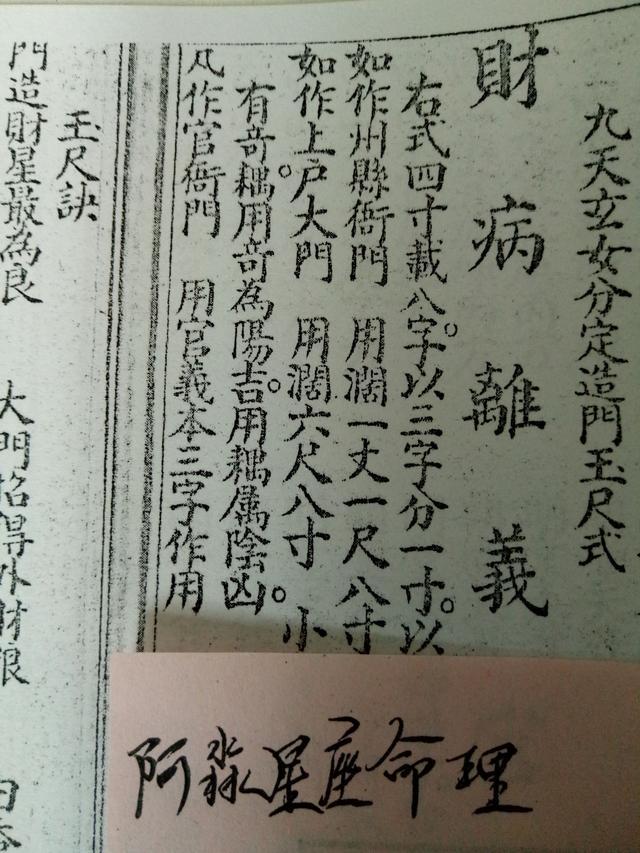 九天玄女分定造門玉尺式
財病離義
右式四寸載八字。以三字分一寸。以
如作州縣衙門　用濶一丈一尺八寸
如作上戶大門　用濶六尺八寸　小
有竒耦。用竒為陽吉。用耦属陰凶。
凡作官衙門　用官義本三字作用
玉尺訣
門造財星最為良　大門招得外財銀
阿淼星座命理